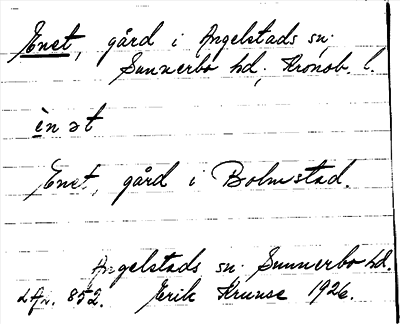 Enet, gård i Angelstads sn.
Sunnerbo hd; Kronob. l.
èn ət
Enet, gård i Bolmstad.
Angelstads sn. Sunnerbo hd.
852. Erik Kruuse 1926.